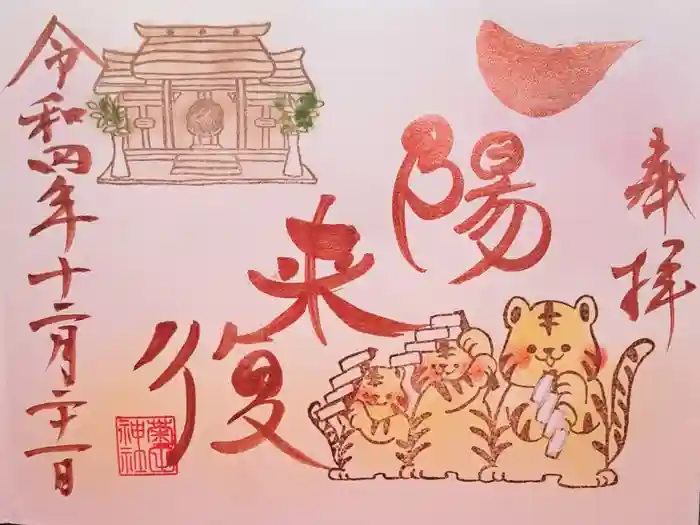 奉拝
陽
来
復
令和四年十二月二十一日
神社